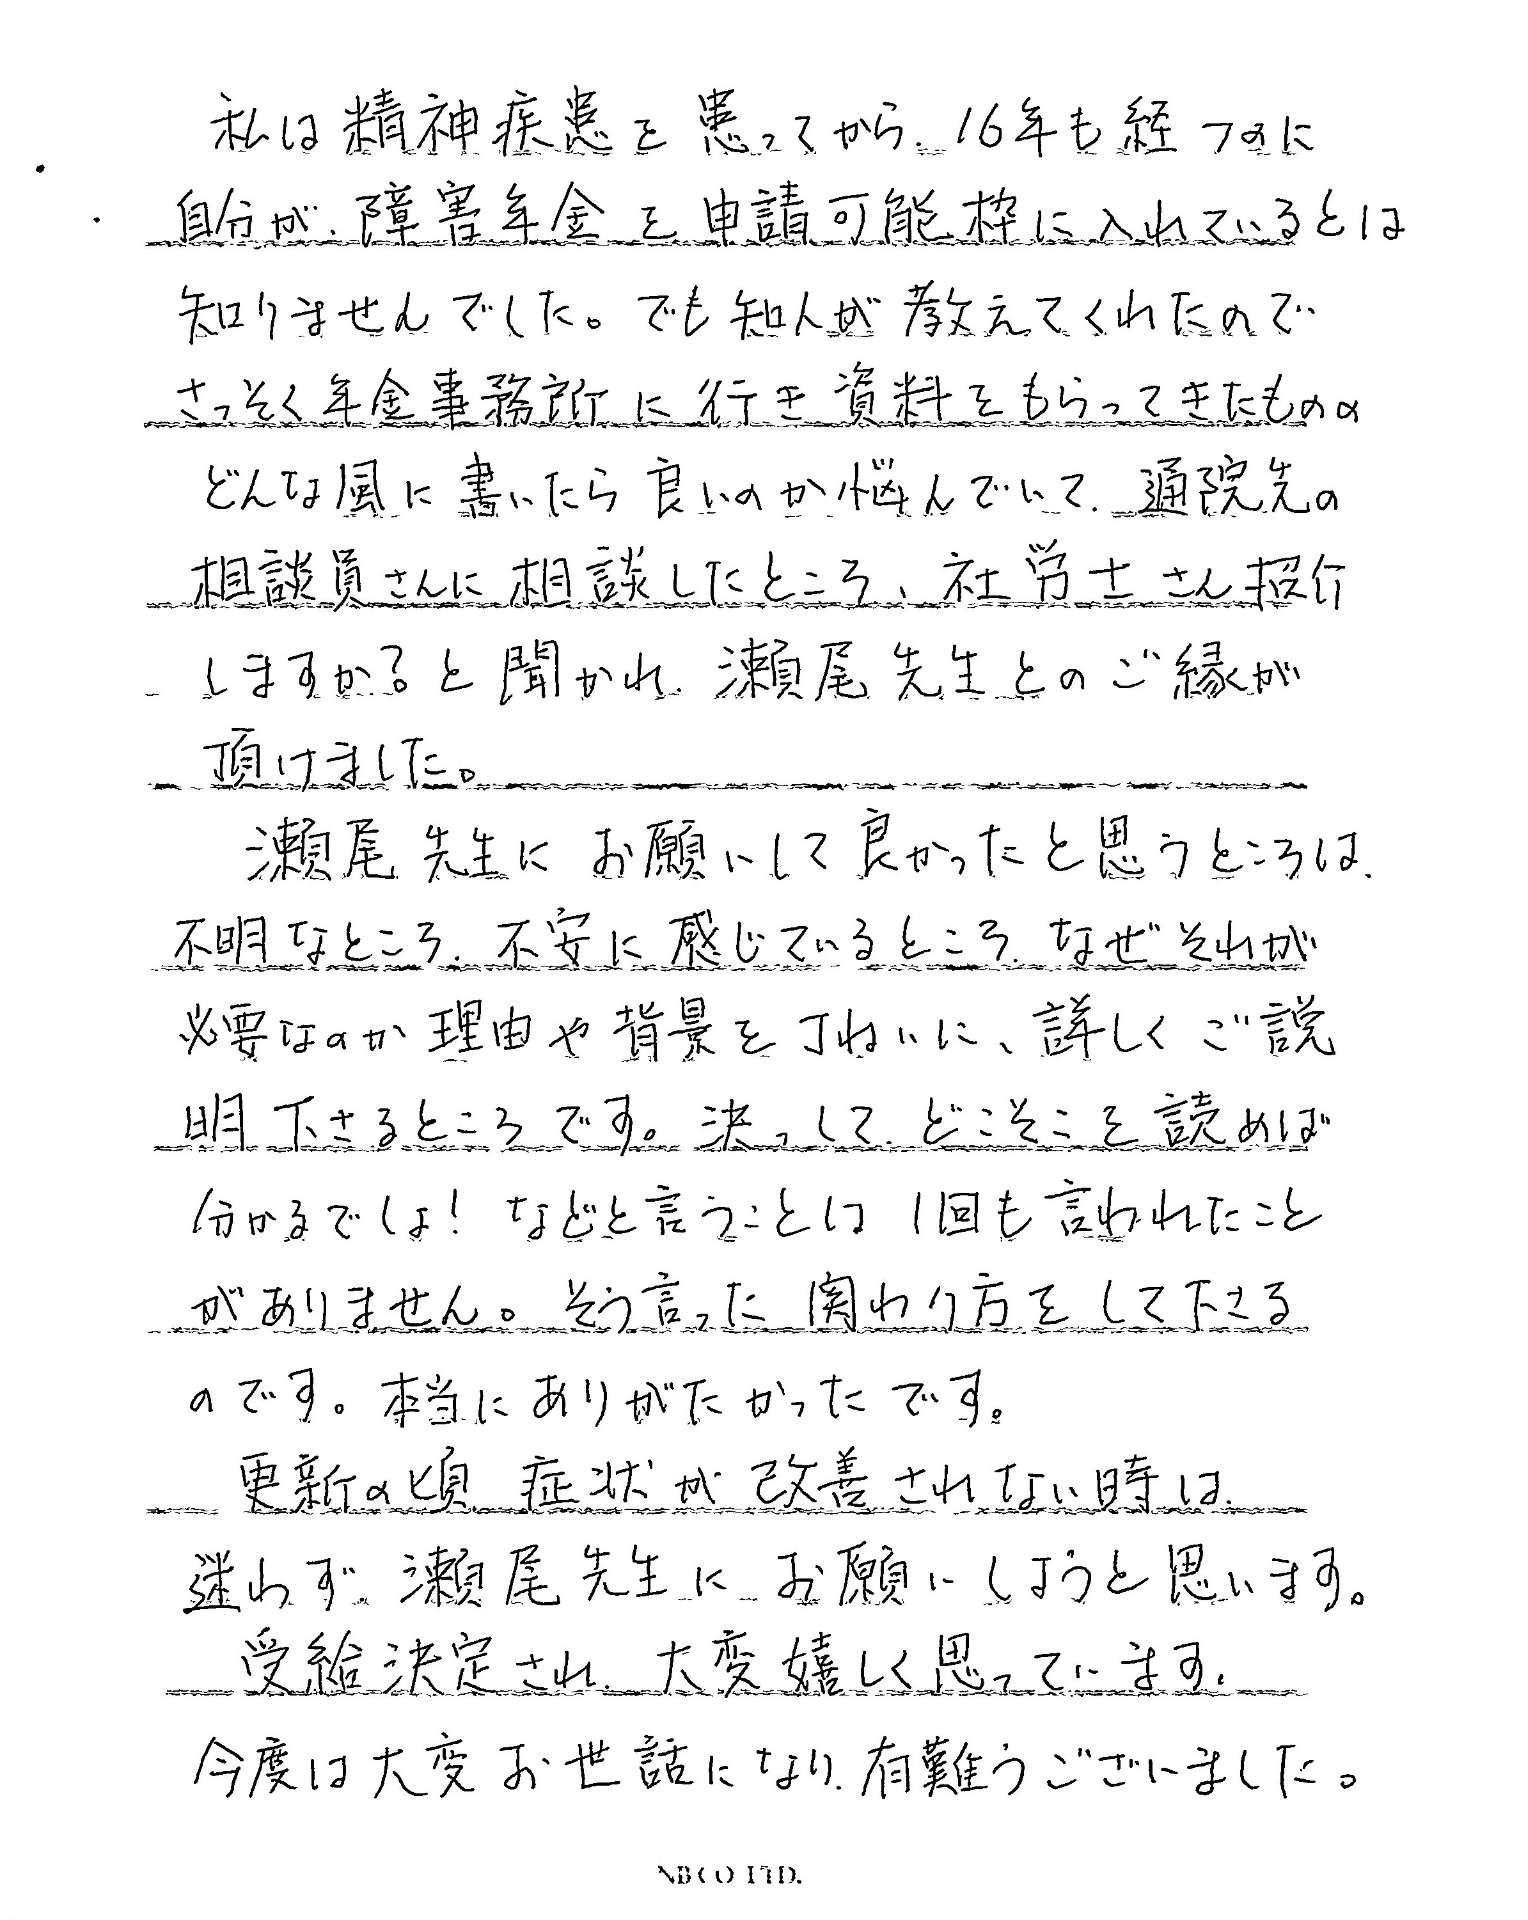 私は精神疾患を患ってから、16年も経つのに
自分が、障害年金を申請可能枠に入れているとは
知りませんでした。でも知人が教えてくれたので
さっそく年金事務所に行き資料をもらってきたものの
どんな風に書いたら良いのか悩んでいて、通院先の
相談員さんに相談したところ、社労士さん招介
しますか?と聞かれ、瀬尾先生とのご縁が
頂けました。
瀬尾先生にお願いして良かったと思うところは、
不明なところ、不安に感じているところ、なぜそれが
必要なのか理由や背景を丁ねいに、詳しくご説
明下さるところです。決っして、どこそこを読めば
分かるでしょ!などと言うことは1回も言われたこと
がありません。そう言った関わり方をして下さる
のです。本当にありがたかったです。
更新の頃、症状が改善されない時は、
迷わず、瀬尾先生にお願いしようと思います。
受給決定され、大変嬉しく思っています。
今度は大変お世話になり、有難うございました。
NBCO LTD.